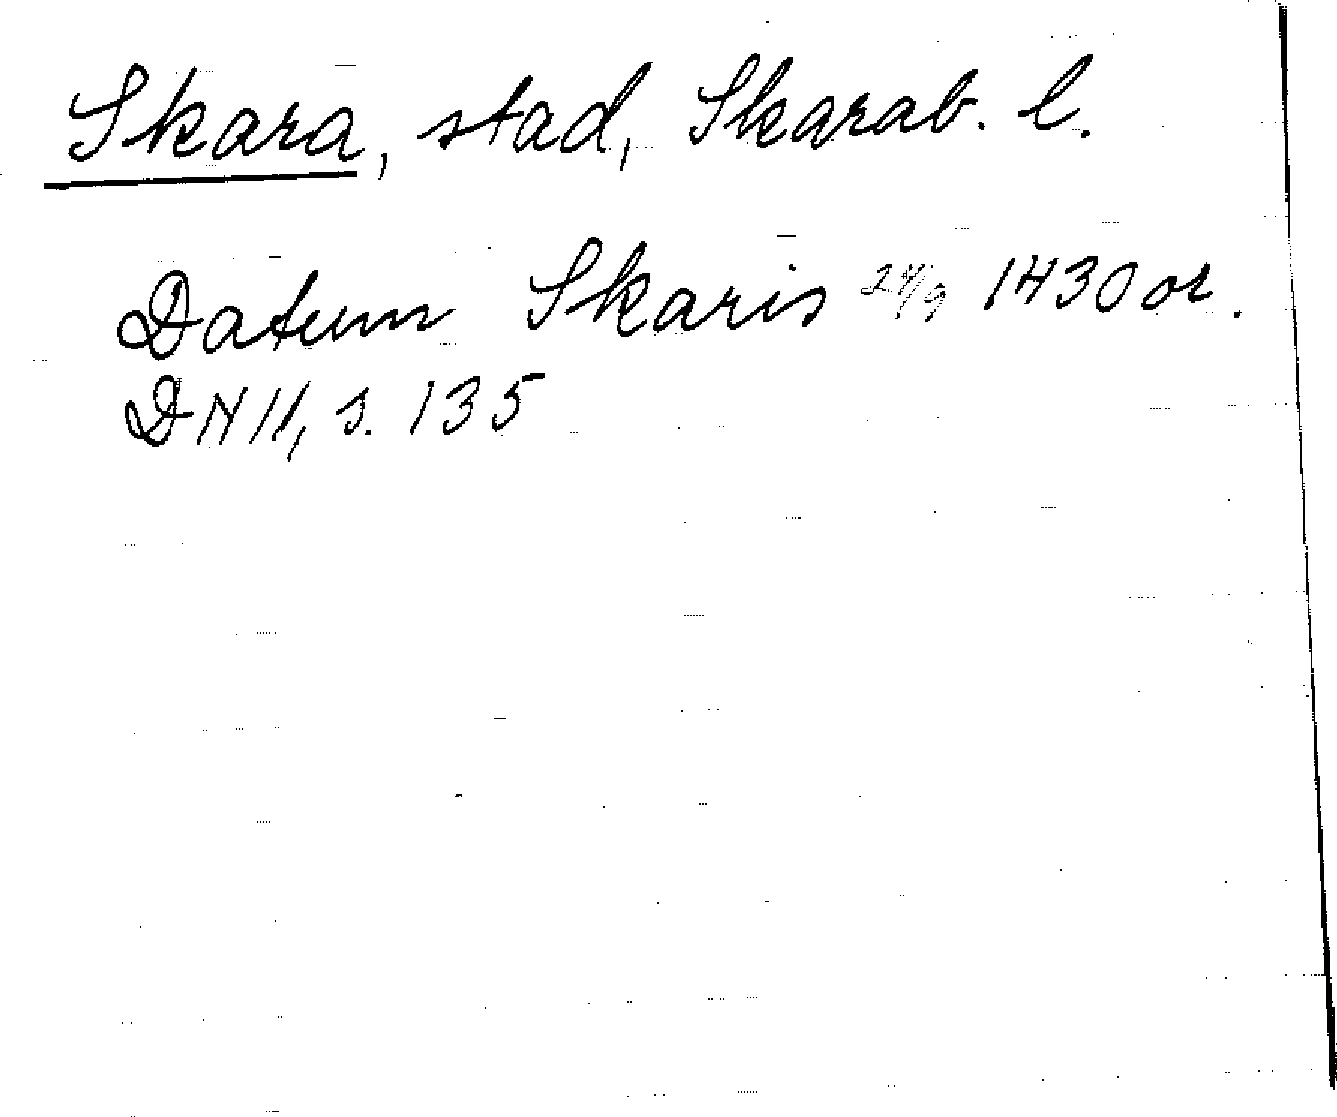 Skara, stad, Skarab. l.
Datum Skaris 24/9 1430 or.
DN II, s. 135